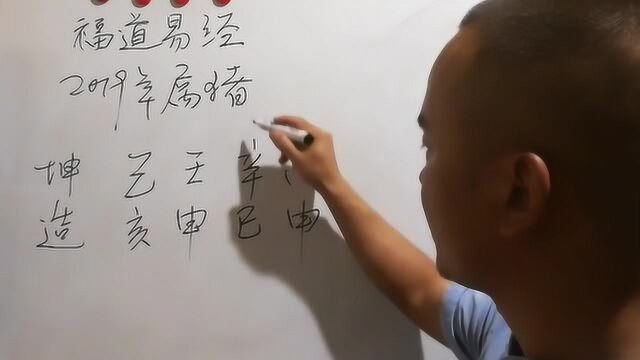 福道易经
2019年属猪
坤 己 壬 辛
造 亥 申 巳 申